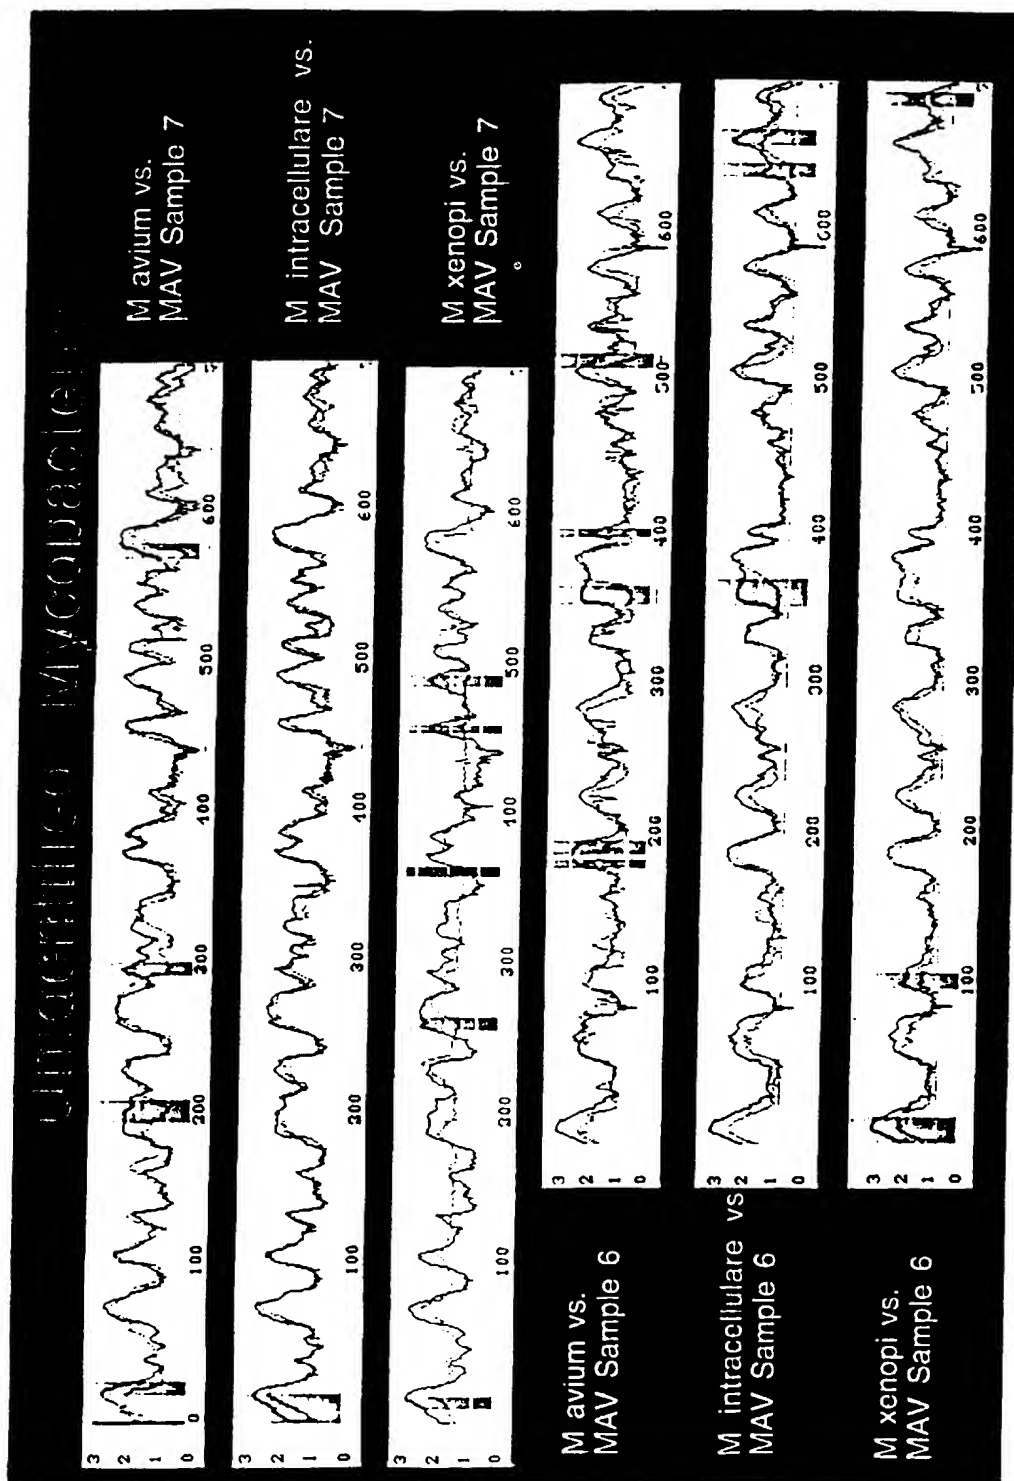 3
2
1
0
0 100 200 300 400 500 600
M avium vs.
MAV Sample 7
3
2
1
0
100 200 300 400 500 600
M intracellulare vs.
MAV Sample 7
3
2
1
0
100 200 300 400 500 600
M xenopi vs.
MAV Sample 7
M avium vs.
MAV Sample 6
3
2
1
0
100 200 300 400 500 600
M intracellulare vs
MAV Sample 6
3
2
1
0
100 200 300 400 500 600
M xenopi vs.
MAV Sample 6
3
2
1
0
100 200 300 400 500 600